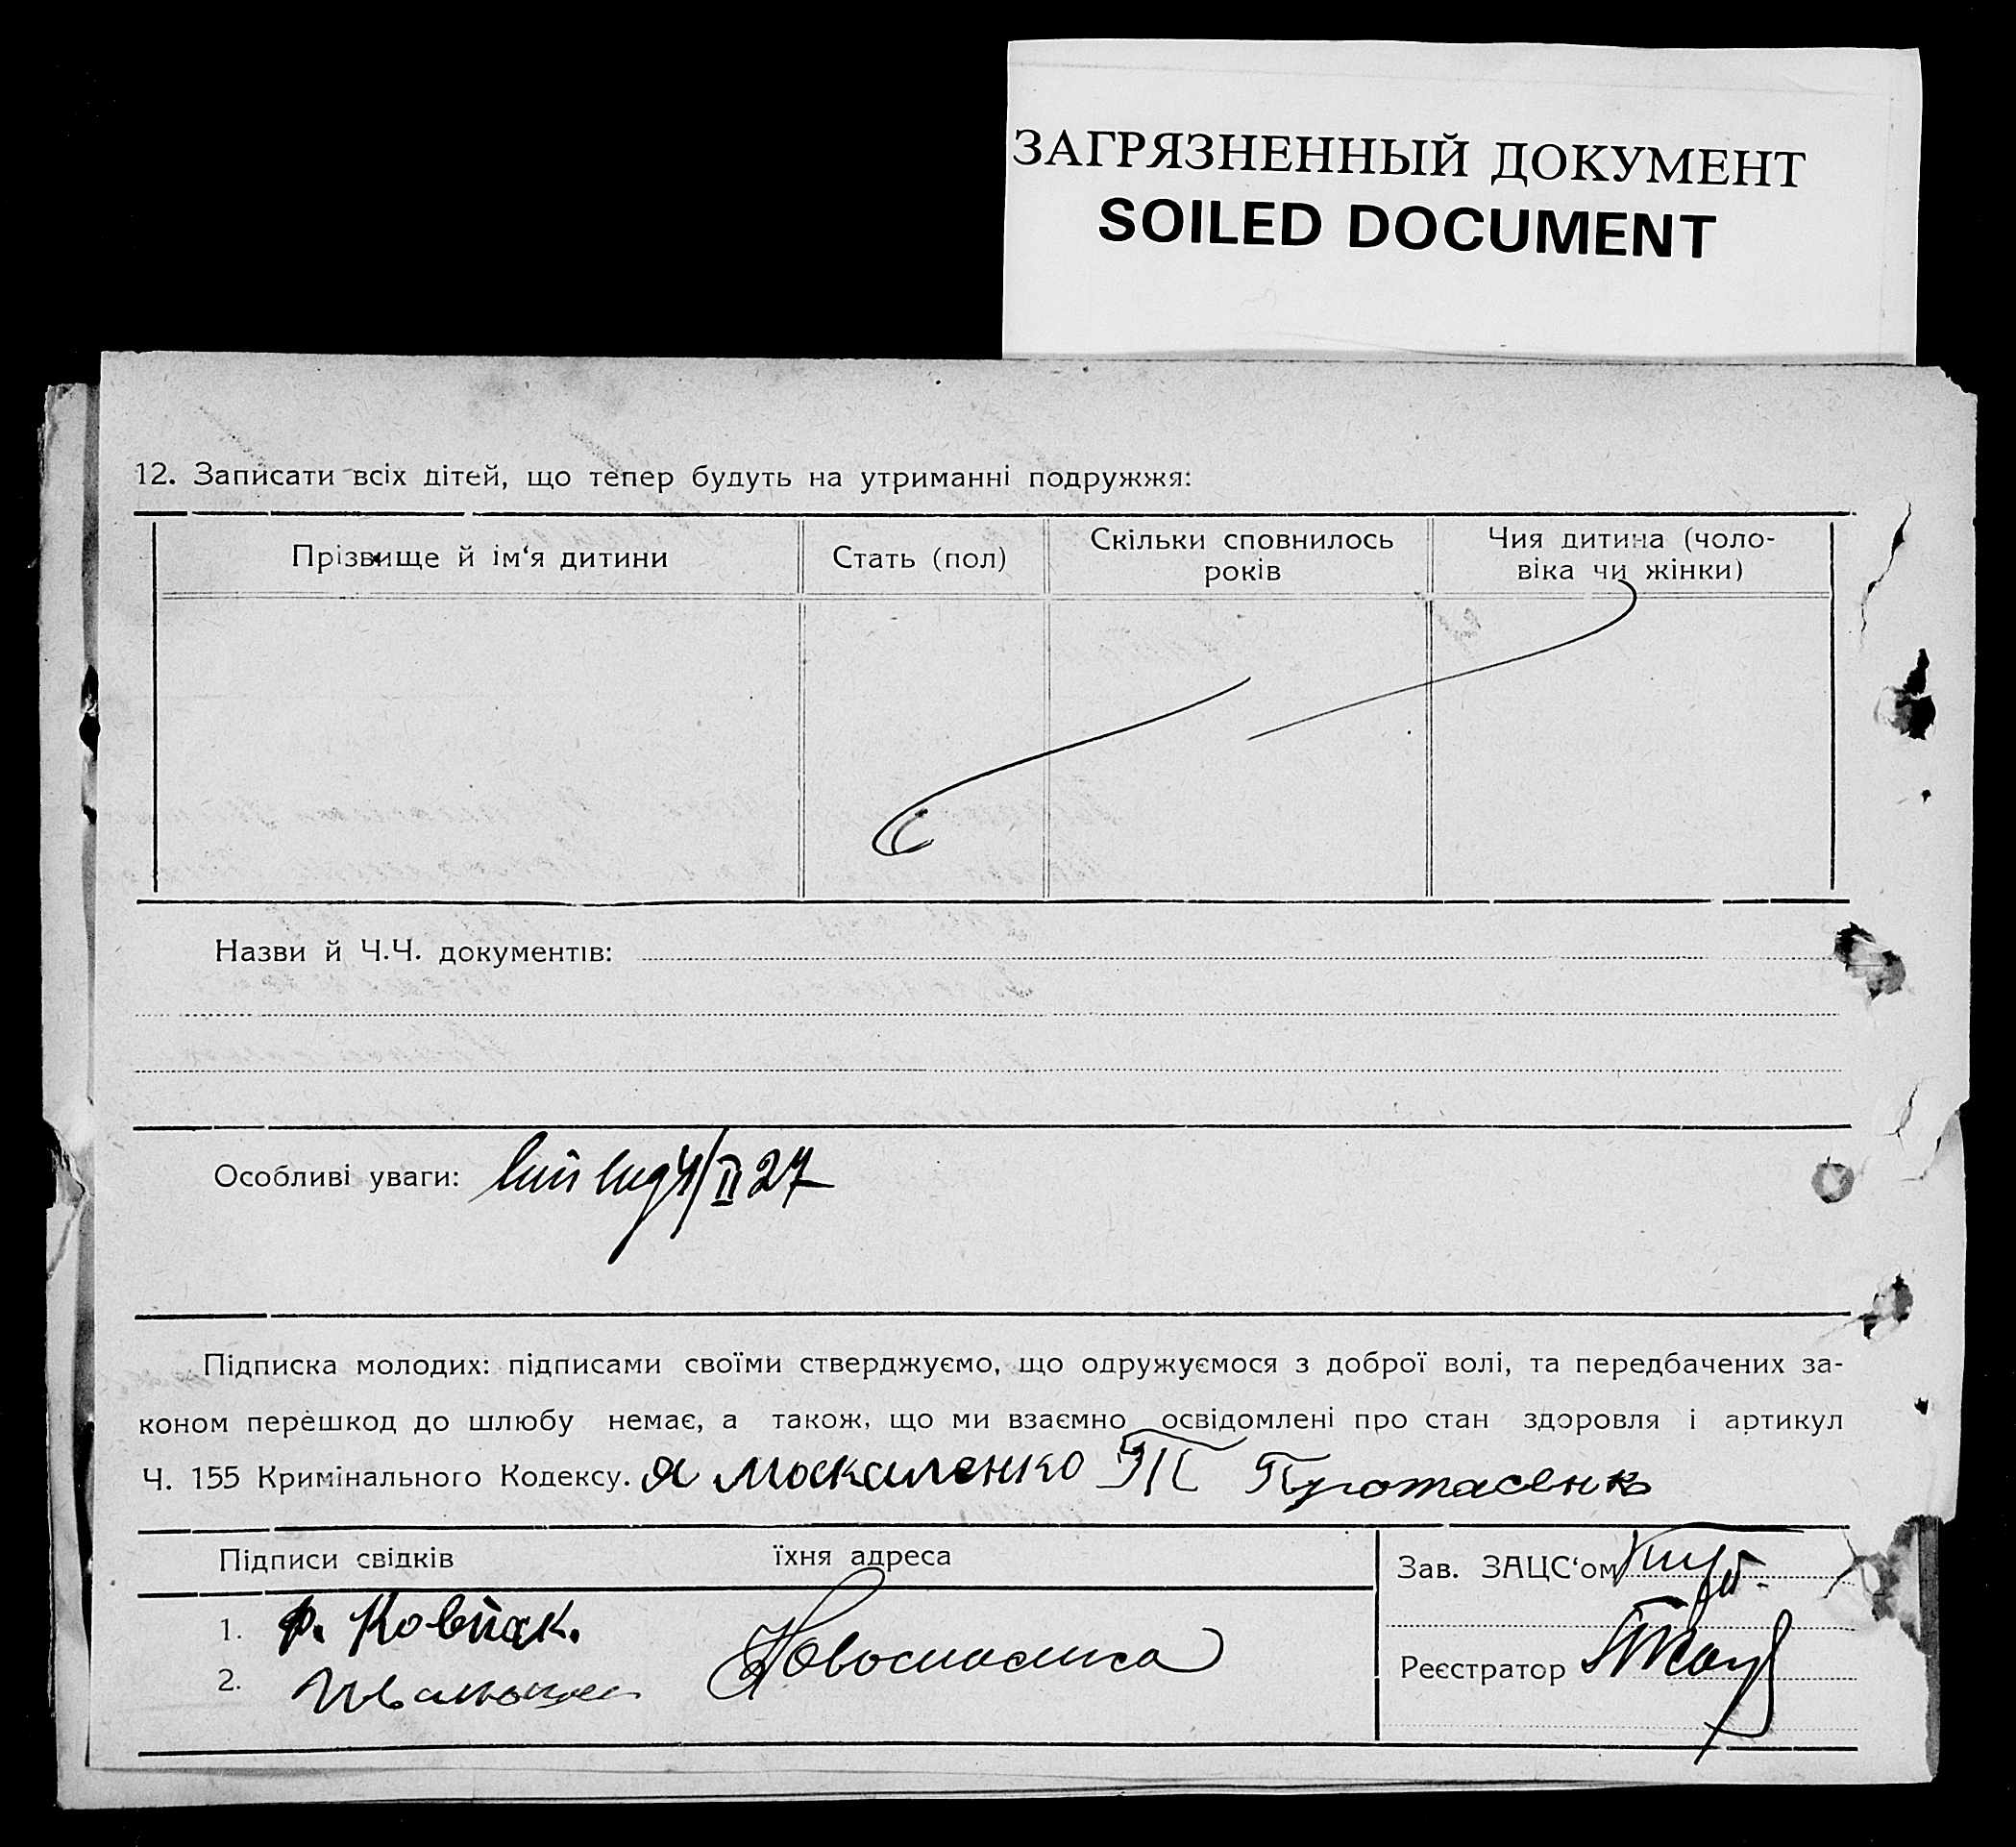 ЗАГРЯЗНЕННЫЙ ДОКУМЕНТ
SOILED DOCUMENT
12. Записати всіх дітей, що тепер будуть на утриманні подружжя:
Прізвище й ім‘я дитини
Стать (пол)
Скільки сповнилось
років
Чия дитина (чоло-
віка чи жінки)
Назви й Ч.Ч. документів:
Особливі уваги: 4/II 27
Підписка молодих: підписами своїми стверджуємо, що одружуємося з доброї волі, та передбачених за-
коном перешкод до шлюбу немає, а також, що ми взаємно освідомлені про стан здоровля і артикул
Ч. 155 Кримінального Кодексу. Я Москаленко Протасенко
Підписи свідків
їхня адреса
Зав. ЗАЦС‘ом
1. Ф. Ковпак.
2.
Новоспаска
Реєстратор